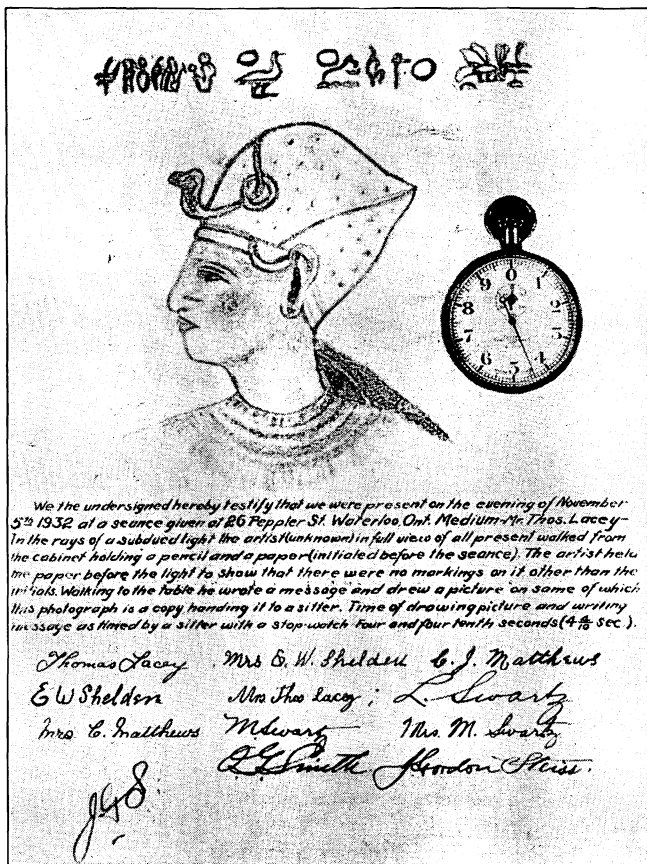 0
1
2
3
4
5
6
7
8
9
We the undersigned hereby testify that we were present on the evening of November
5th 1932 at a seance given at 26 Peppler St. Waterloo, Ont. Medium-Mr. Thos. Lacey-
In the rays of a subdued light the artist (unknown) in full view of all present walked from
the cabinet holding a pencil and a paper (initialed before the seance). The artist held
the paper before the light to show that there were no markings on it other than the
initials. Walking to the table he wrote a message and drew a picture on same of which
this photograph is a copy handing it to a sitter. Time of drawing picture and writing
message as timed by a sitter with a stop-watch Four and four tenth seconds (4 4/10 sec.).
Thomas Lacey Mrs E. W. Shelden C. J. Matthews
E W Shelden Mrs Thos Lacey; L. Swartz
Mrs C. Matthews M. Swartz Mrs. M. Swartz
O G Smith J Gordon Steiss.
J.G.S.